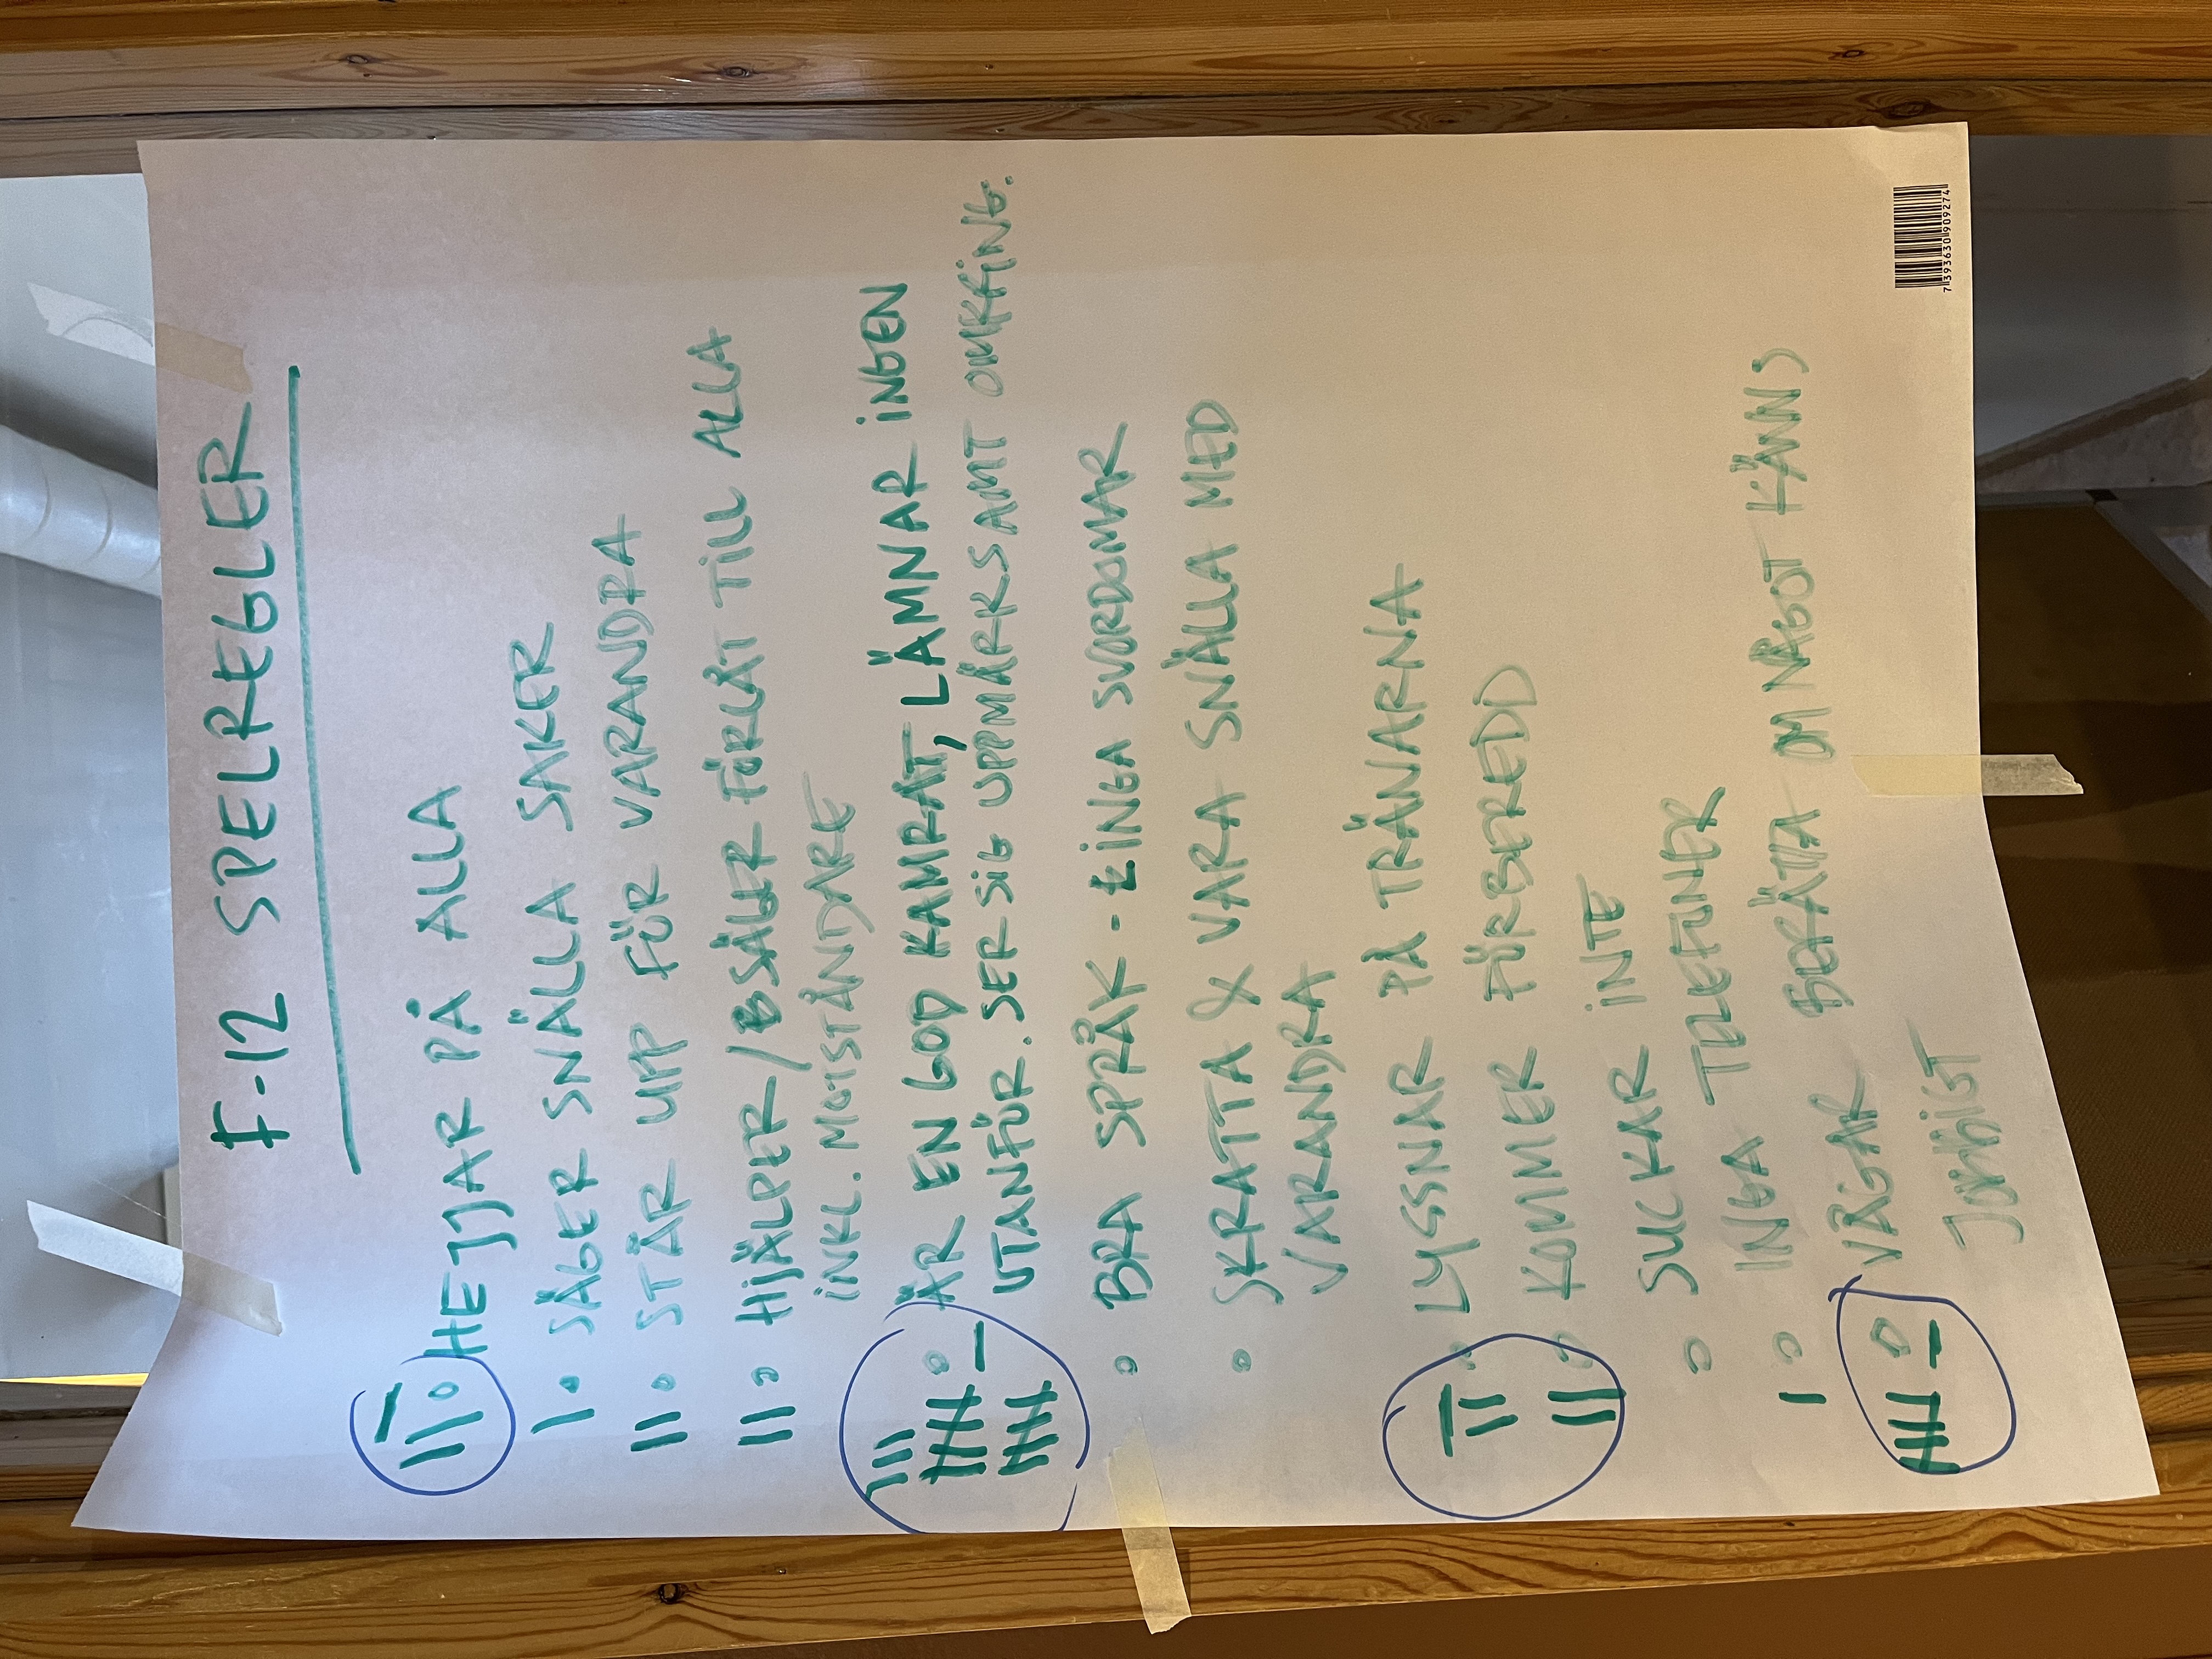 F-12 SPELREGLER
III • HEJJAR PÅ ALLA
I • SÄGER SNÄLLA SAKER
II • STÅR UPP FÖR VARANDRA
II • HJÄLPER / SÄGER FÖRLÅT TILL ALLA
INKL. MOTSTÅNDARE
• ÄR EN GOD KAMRAT, LÄMNAR INGEN
UTANFÖR. SER SIG UPPMÄRKSAMT OMKRING.
• BRA SPRÅK - INGA SVORDOMAR
• SKRATTA & VARA SNÄLLA MED
VARANDRA
III • LYSSNAR PÅ TRÄNARNA
II • KOMMER FÖRBEREDD
• SUCKAR INTE
I • INGA TELEFONER
• VÅGAR BERÄTTA OM NÅGOT KÄNNS
JOBBIGT
7393630909274